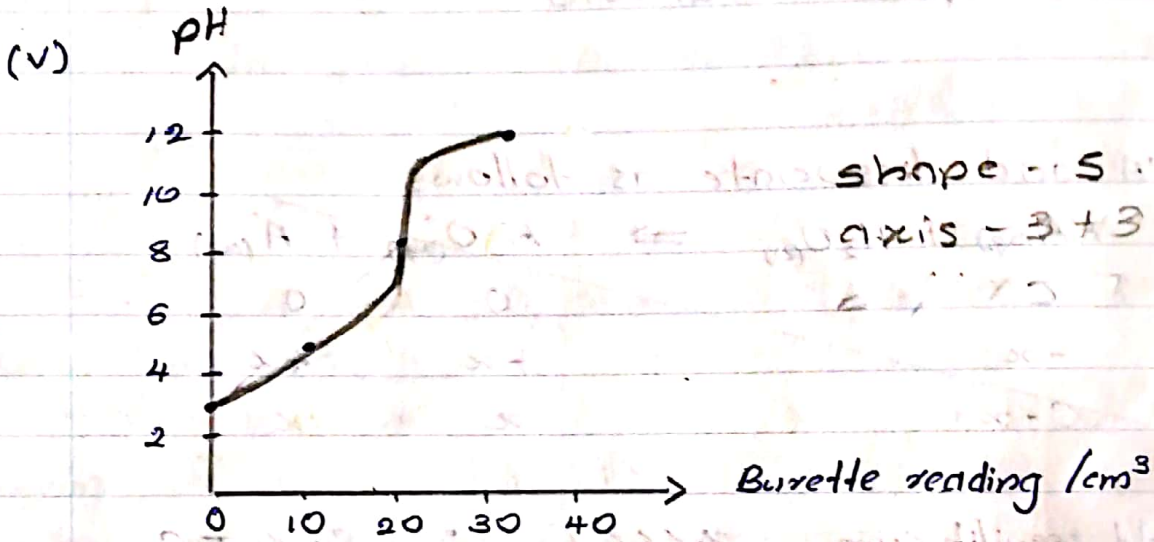 (V)
pH
12
10
8
6
4
2
0 10 20 30 40
Burette reading /cm³
shape - 5.
axis - 3 + 3